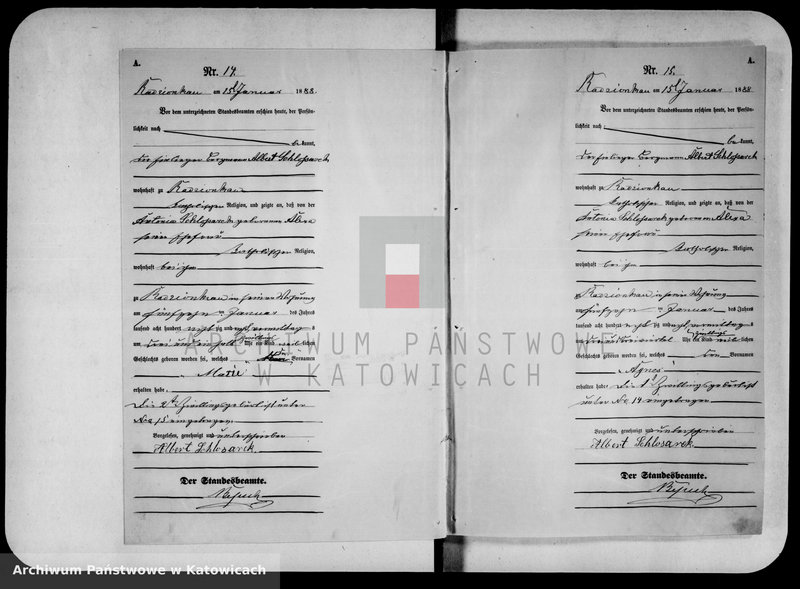 A.
Nr. 14.
Radzionkau am 15ten Januar 1888.
Vor dem unterzeichneten Standesbeamten erschien heute, der Persön-
lichkeit nach
be kannt,
der Bergmann Albert Schlosarek
wohnhaft zu Radzionkau
katholischer Religion, und zeigte an, daß von der
Antonia Schlosarek geborenen Alexa
seiner Ehefrau
katholischer Religion,
wohnhaft bei ihm
zu Radzionkau in seiner Wohnung
am fünfzehn ten Januar des Jahres
tausend acht hundert achtzig und acht vormittags
um drei und ein halb Uhr ein Kind weiblichen
Geschlechts geboren worden sei, welches Vornamen
Marie
erhalten habe.
Die 2te Zwillingsgeburt ist unter
No 15 eingetragen.
Vorgelesen, genehmigt und unterschrieben
Albert Schlosarek
Der Standesbeamte.
A.
Nr. 15.
Radzionkau am 15ten Januar 1888
Vor dem unterzeichneten Standesbeamten erschien heute, der Persön-
lichkeit nach
be kannt,
der Bergmann Albert Schlosarek
wohnhaft zu Radzionkau
katholischer Religion, und zeigte an, daß von der
Antonia Schlosarek geborenen Alexa
seiner Ehefrau
katholischer Religion,
wohnhaft bei ihm
zu Radzionkau in seiner Wohnung
am fünfzehn ten Januar des Jahres
tausend acht hundert achtzig und acht vormittags
um drei Uhr ein Kind weiblichen
Geschlechts geboren worden sei, welches den Vornamen
Agnes
erhalten habe. Die 1te Zwillingsgeburt ist
unter No 14 eingetragen
Vorgelesen, genehmigt und unterschrieben
Albert Schlosarek
Der Standesbeamte.
ARCHIWUM PAŃSTWOWE
W KATOWICACH
Archiwum Państwowe w Katowicach